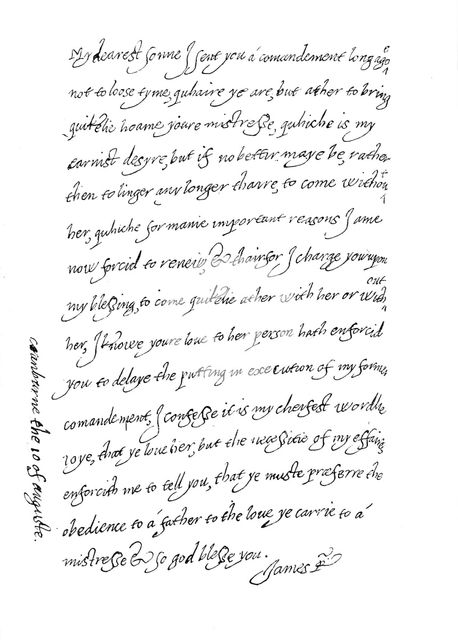 My dearest sonne I sent you a comandement long ago
not to loose tyme, quhaire ye are, but ather to bring
quikelie hoame youre mistresse, quhiche is my
earnist desyre, but if no bettir maye be, rather
then to linger any longer thaire, to come without
her, quhiche for manie important reasons I ame
now forcid to renew, & thairfor I charge you upon
my blessing, to come quikelie ather with her or without
her, I knowe youre love to her person hath enforcid
you to delaye the putting in execution of my former
comandement, I confesse it is my cheifest wordlie
ioye, that ye love her, but the necessitie of my effairs
enforcith me to tell you, that ye muste præferre the
obedience to a father to the love ye carrie to a
mistresse & so god blesse you.
James R
cranburne the 10 of auguste.